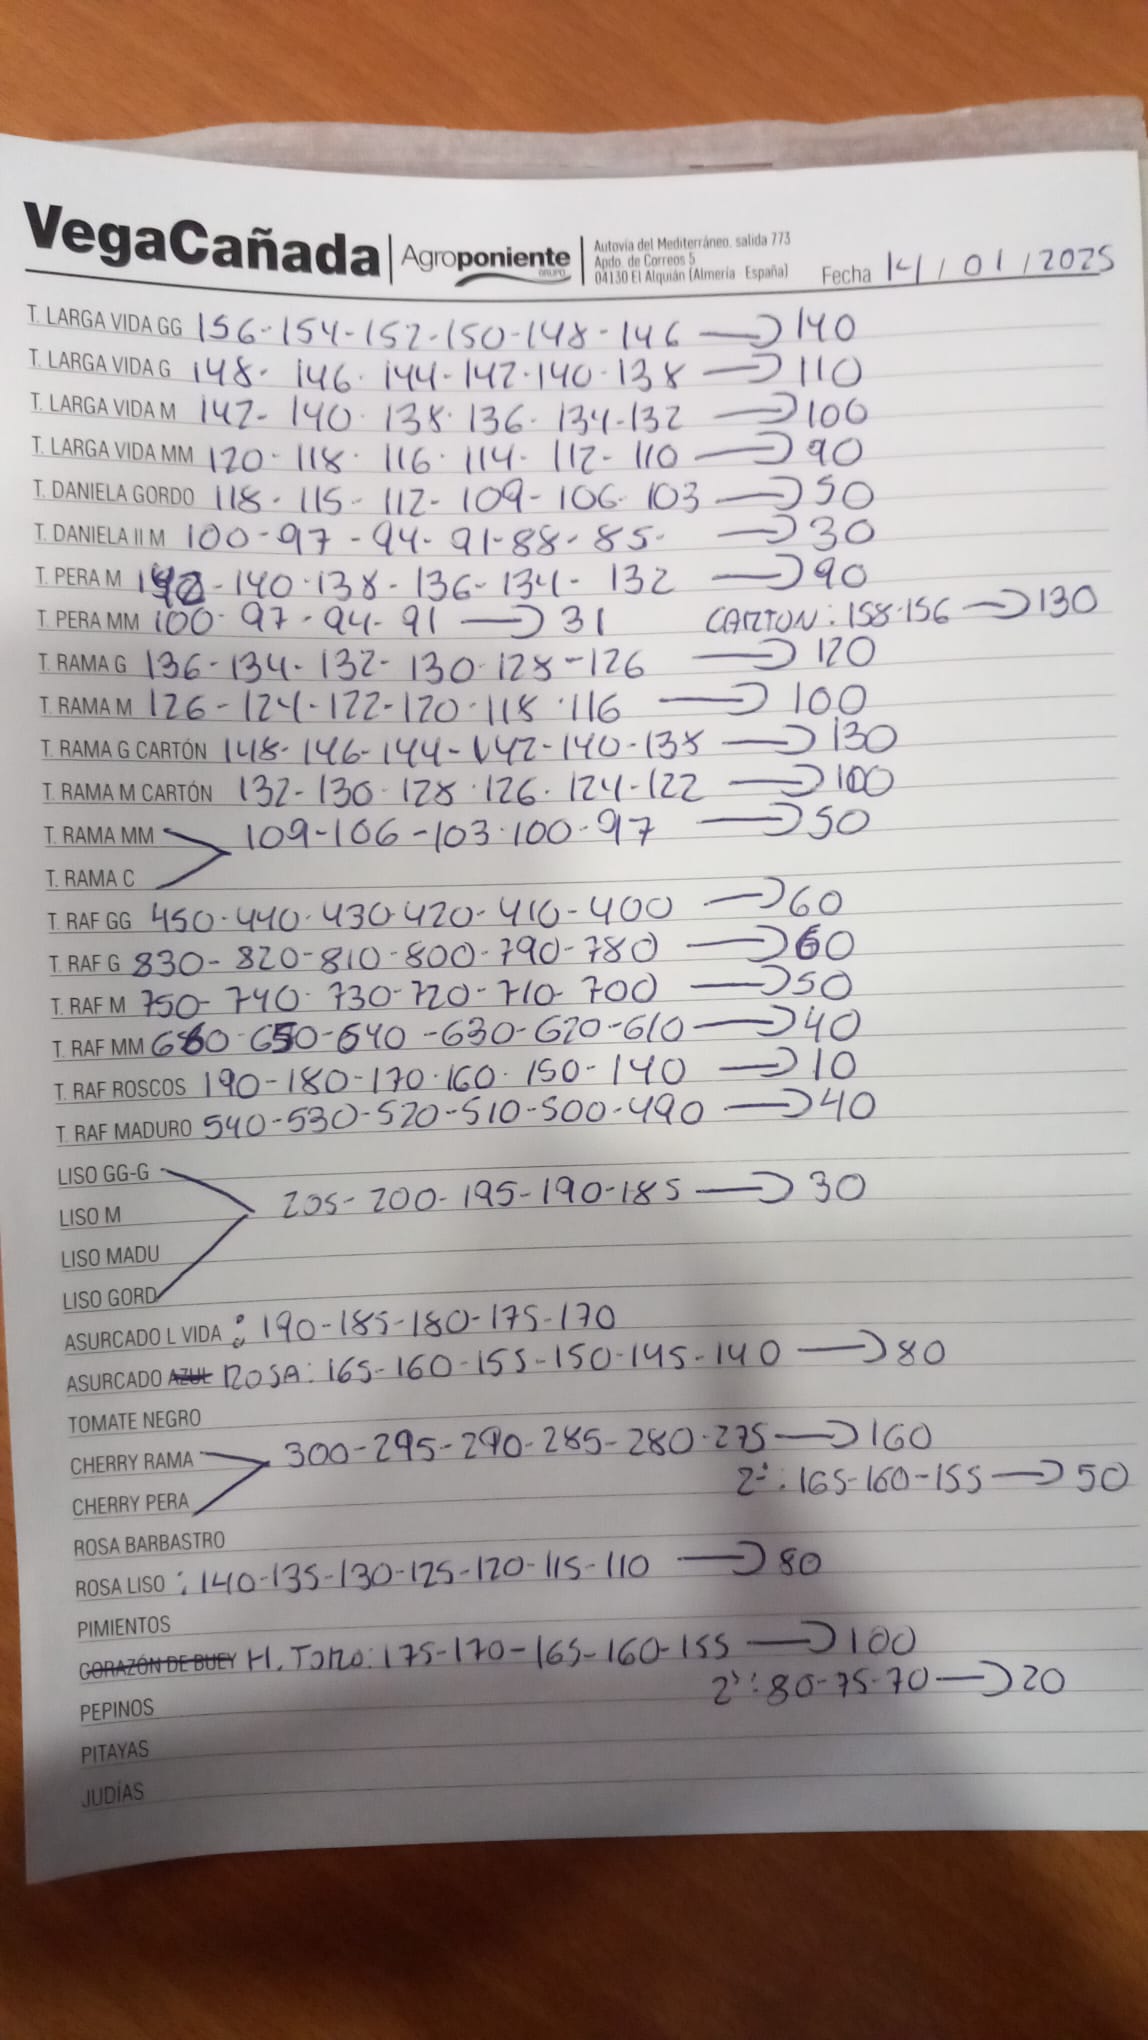 VegaCañada | Agroponiente GRUPO
Autovía del Mediterráneo, salida 773
Apdo. de Correos 5
04130 El Alquián (Almería España)
Fecha 14/01/2025
T. LARGA VIDA GG 156-154-152-150-148-146 → 140
T. LARGA VIDA G 148-146-144-142-140-138 → 110
T. LARGA VIDA M 142-140-138-136-134-132 → 100
T. LARGA VIDA MM 120-118-116-114-112-110 → 90
T. DANIELA GORDO 118-115-112-109-106-103 → 50
T. DANIELA II M 100-97-94-91-88-85- → 30
T. PERA M 142-140-138-136-134-132 → 90
T. PERA MM 100-97-94-91 → 31 CARTON: 158-156 → 130
T. RAMA G 136-134-132-130-128-126 → 120
T. RAMA M 126-124-122-120-118-116 → 100
T. RAMA G CARTÓN 148-146-144-142-140-138 → 130
T. RAMA M CARTÓN 132-130-128-126-124-122 → 100
T. RAMA MM 109-106-103-100-97 → 50
T. RAMA C
T. RAF GG 450-440-430-420-410-400 → 60
T. RAF G 830-820-810-800-790-780 → 60
T. RAF M 750-740-730-720-710-700 → 50
T. RAF MM 660-650-640-630-620-610 → 40
T. RAF ROSCOS 190-180-170-160-150-140 → 10
T. RAF MADURO 540-530-520-510-500-490 → 40
LISO GG-G
LISO M 205-200-195-190-185 → 30
LISO MADU
LISO GORD
ASURCADO L VIDA : 190-185-180-175-170
ASURCADO AZUL ROSA: 165-160-155-150-145-140 → 80
TOMATE NEGRO
CHERRY RAMA 300-295-290-285-280-275 → 160
2ª: 165-160-155 → 50
CHERRY PERA
ROSA BARBASTRO
ROSA LISO : 140-135-130-125-120-115-110 → 80
PIMIENTOS
CORAZÓN DE BUEY H. TORO: 175-170-165-160-155 → 100
2ª: 80-75-70 → 20
PEPINOS
PITAYAS
JUDÍAS